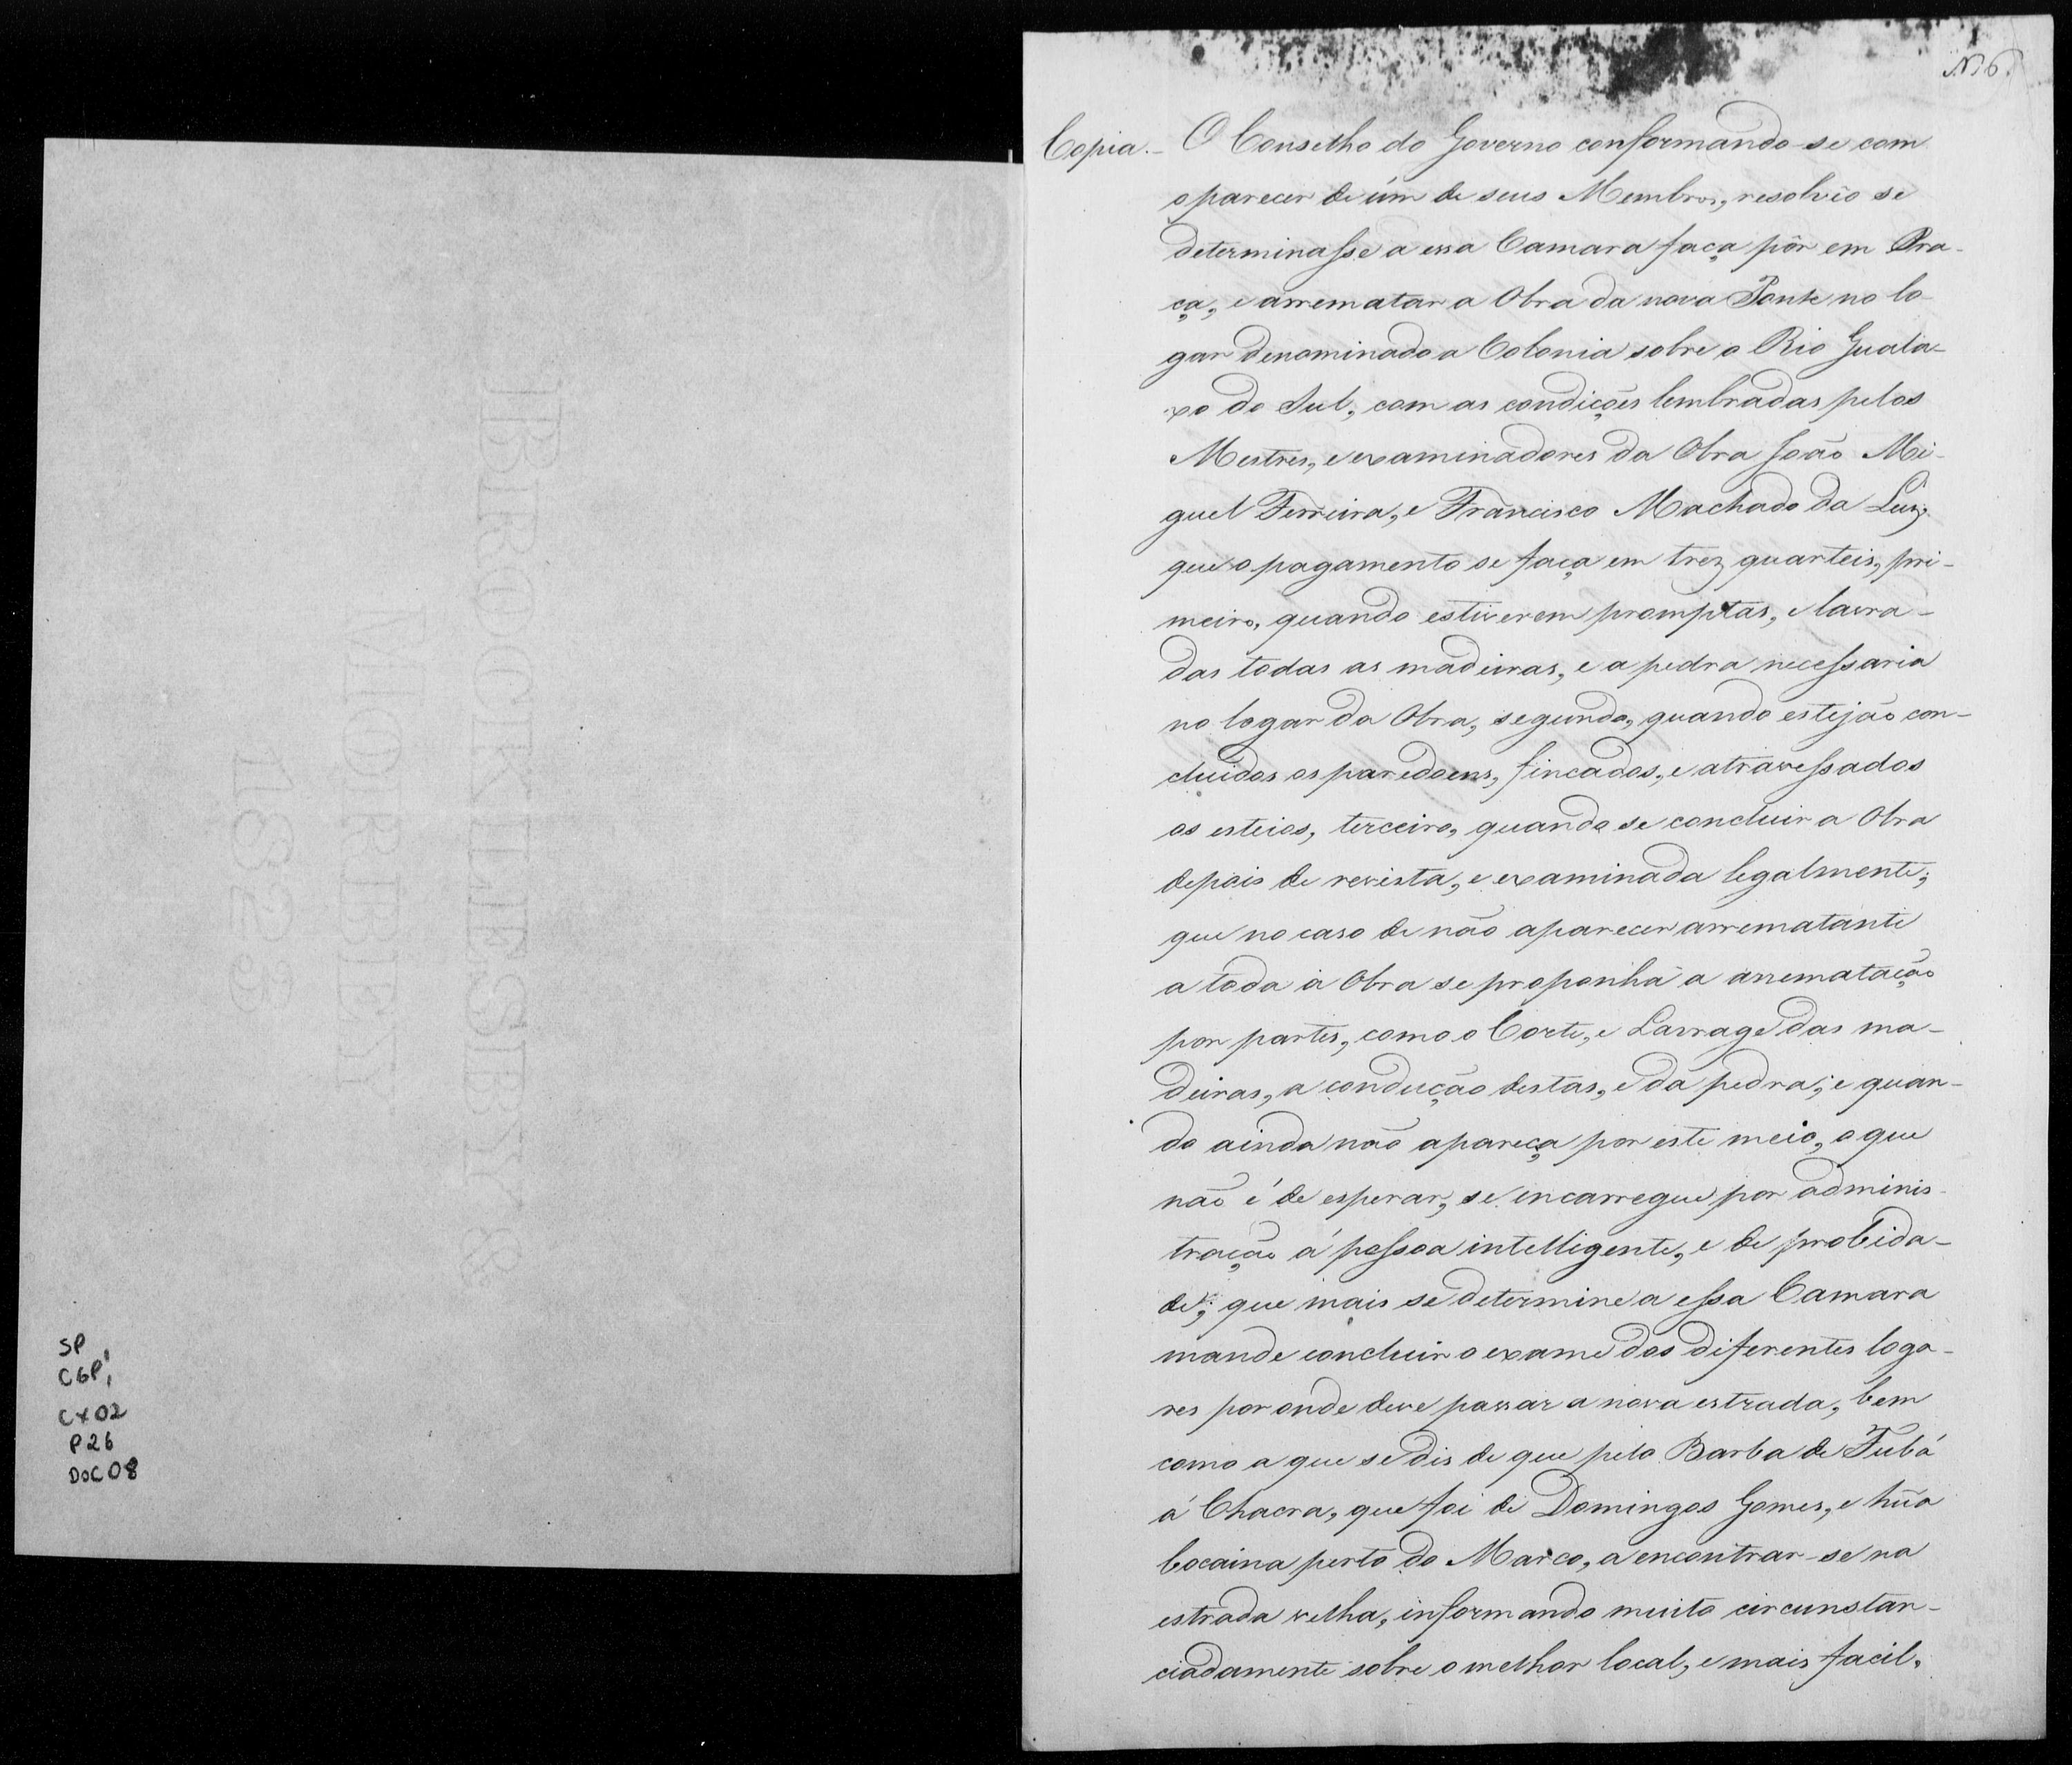 SP
CGP1
CX02
P26
DOC08
BROCKLESBY &
MORBEY
1829
N. 6.
Copia. O Conselho do Governo conformando-se com
o parecer de úm de seus Membros, resolvêo se
determinasse a essa Camara faça pôr em Pra-
ça, e arrematar a Obra da nova Ponte no lo-
gar denominado a Colonia sobre o Rio Guala-
xo do Sul, com as condições lembradas pelos
Mestres, e examinadores da Obra João Mi-
guel Ferreira, e Francisco Machado da Luz;
que o pagamento se faça em trez quarteis, pri-
meiro, quando estiverem promptas, e lavra-
das todas as madeiras, e a pedra necessaria
no logar da Obra, segundo, quando estejão con-
cluidos os paredoens, fincados, e atravessados
os esteios, terceiro, quando se concluir a Obra
depois de revista, e examinada legalmente;
que no caso de não aparecer arrematante
a toda a Obra se proponha a arrematação
por partes, como o Corte, e Lavrage das ma-
deiras, a condução destas, e da pedra; e quan-
do ainda não apareça por este meio, o que
não é de esperar, se incarregue por adminis-
tração á pessoa intelligente, e de probida-
de; que mais se determine a essa Camara
mande concluir o exame dos diferentes loga-
res por onde deve passar a nova estrada, bem
como a que se dis de que pelo Barba de Fubá
á Chacra, que foi de Domingos Gomes, e hũa
bocaina perto do Marco, a encontrar-se na
estrada velha, informando muito circunstan-
ciadamente sobre o melhor local, e mais facil,